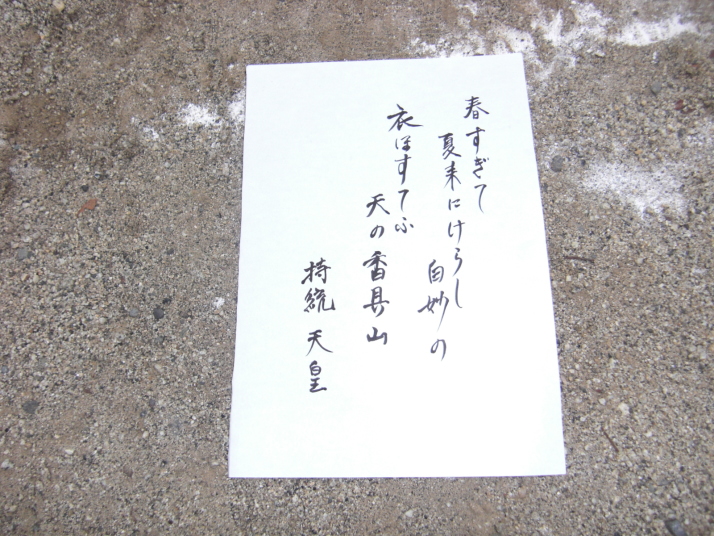 春すぎて
夏来にけらし
白妙の
衣ほすてふ
天の香具山
持統天皇